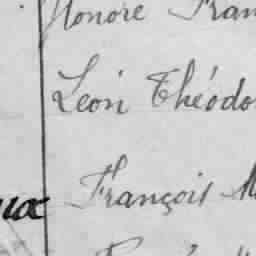 Honoré Fran
Léon Théodo
François M